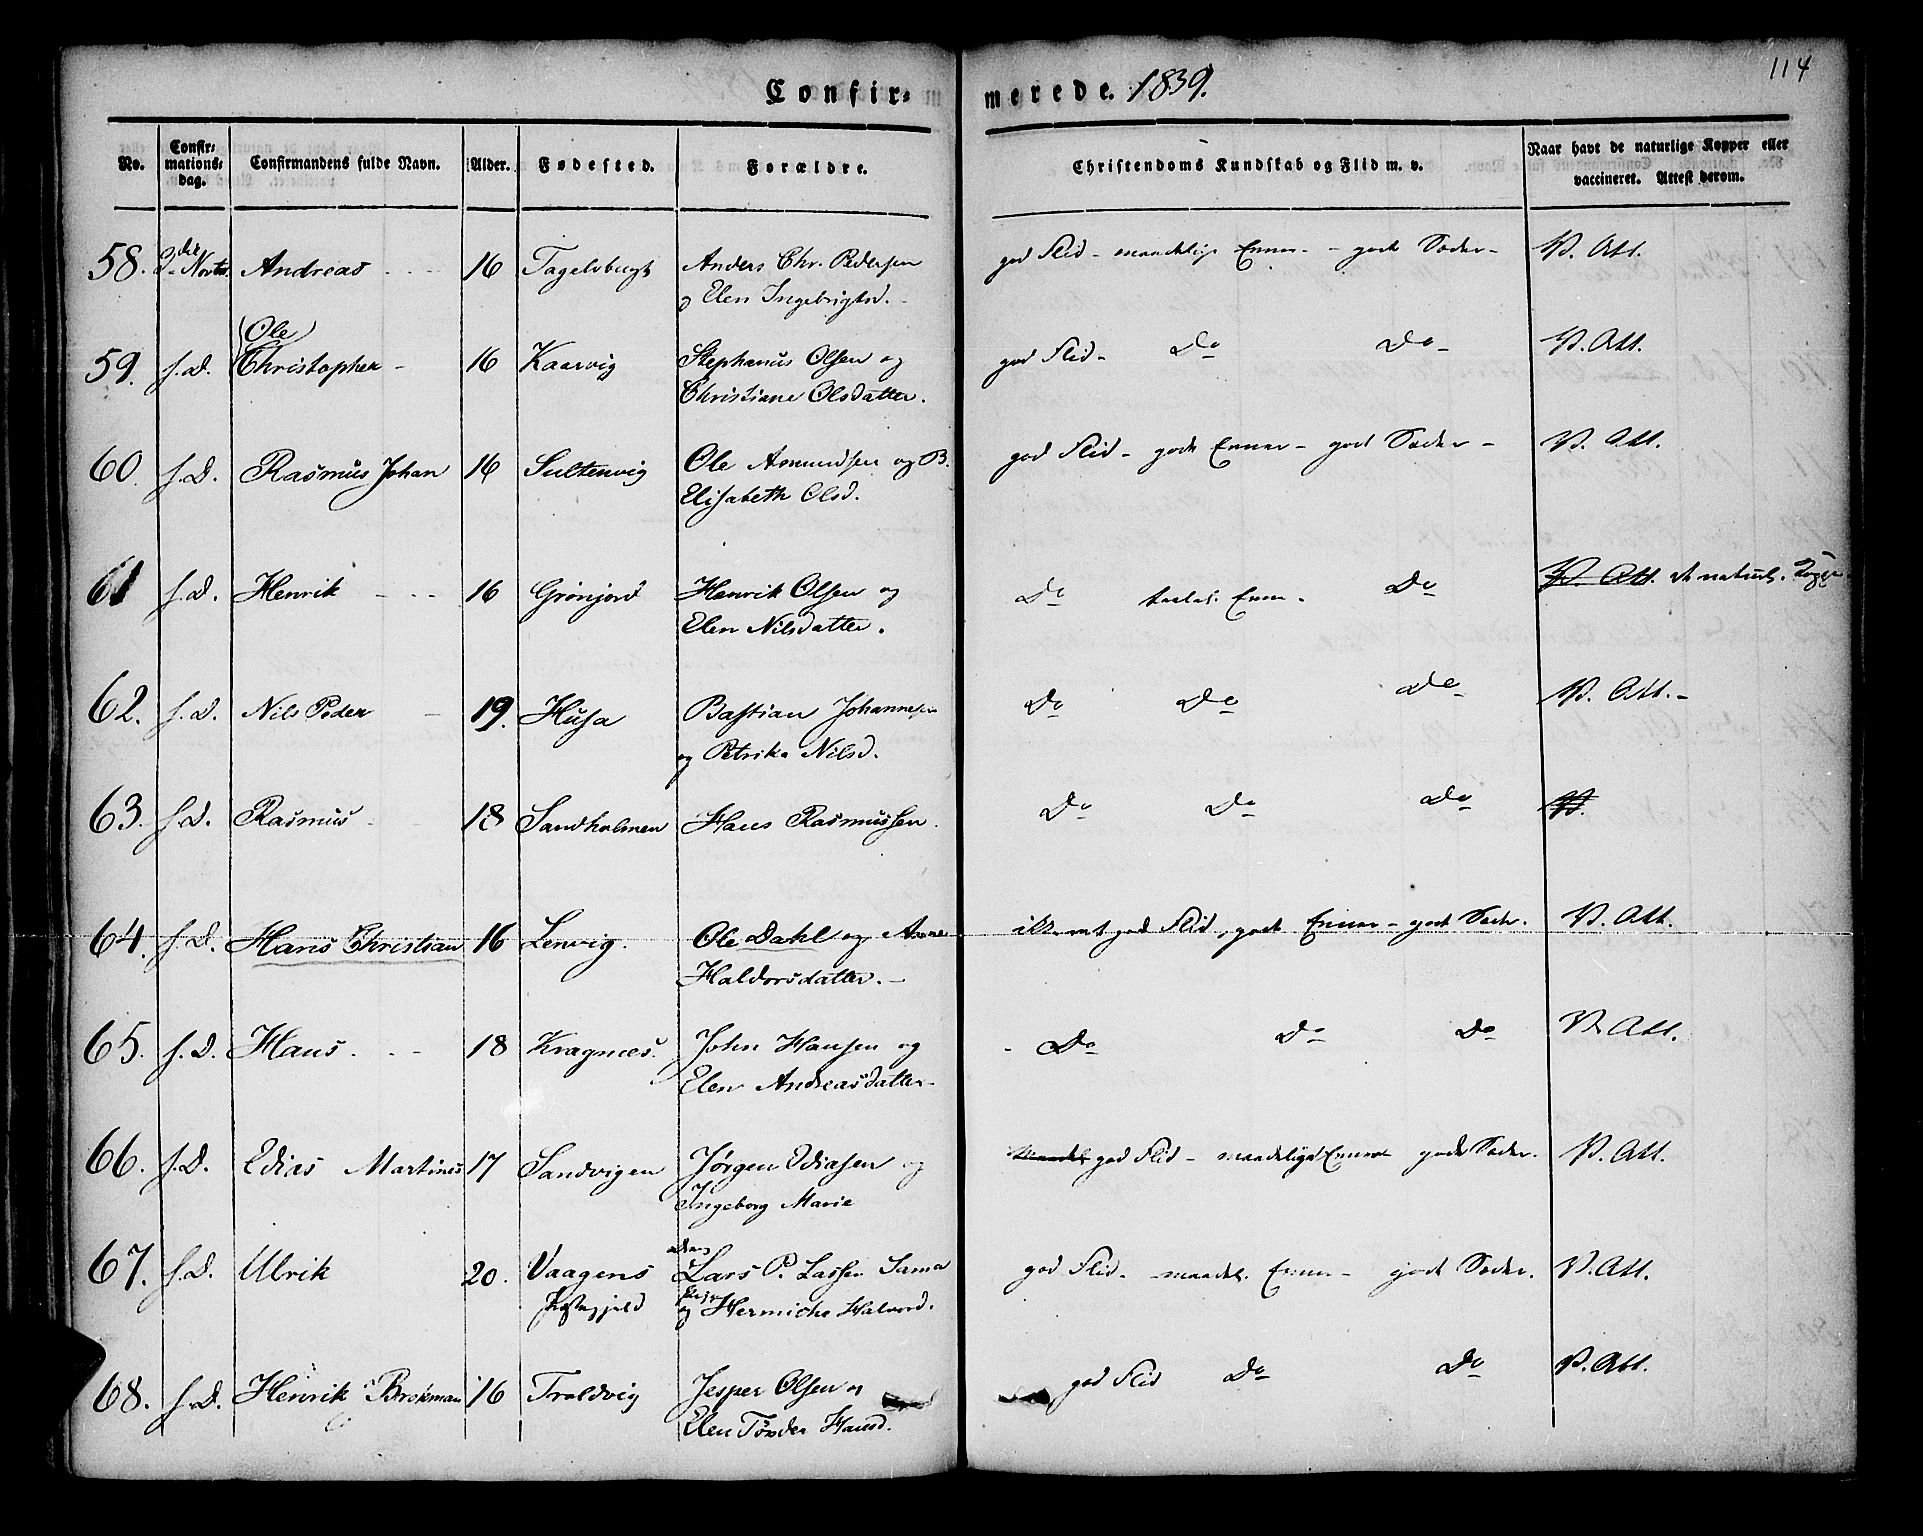 114
Confirmerede. 1839.
No. Confirmationsdag. Confirmandens fulde Navn. Alder. Fødested. Forældre. Christendoms Kundskab og Flid m. v. Naar havt de naturlige Kopper eller vaccineret. Attest derom.
58. Andreas 16 Anders Chr. Pedersen god Flid - maadelige Evner - gode Sæder - V. Att.
og Elen Ingebrigtsd.
(Ole)
59. s. D. Christopher - 16 Kaarvig Stephanus Olsen og god Flid - Do Do - V. Att.
Christiane Olsdatter.
60. s. D. Rasmus Johan 16 Sultenvig Ole Amundsen og B. god Flid - gode Evner - god Sæder - V. Att.
Elisabeth Olsd.
61 s. D. Henrik 16 Grønjord Henrik Olsen og Do Evner - Do V. Att. naturl.
Elen Nilsdatter.
62. s. D. Nils Peder 19. Husa Bastian Johannesen Do Do Do V. Att. -
og Petrika Nilsd.
63. s. D. Rasmus 18 Sandholmen Hans Rasmussen. Do Do Do V.
64. s. D. Hans Christian 16 Lenvig. Ole Dahl og Anne ikke ret god Flid, gode Evner - gode Sæder. V. Att.
Haldorsdatter. -
65. s. D. Hans 18 Kragnæs. John Hansen og - Do Do Do V. Att.
Elen Andreasdatter -
66. s. D. Edias Martines 17 Sandvigen Jørgen Ediasen og god Flid - maadelige Evner gode Sæder. V. Att.
Ingeborg Marie
67. s. D. Ulrik 20. Vaagens Lars P. Lassen Sama god Flid - maadel. Evner - gode Sæder. V. Att.
Præstegjeld og Hermiche Halvord.
68. s. D. Henrik Brokman 16 Troldvig Jesper Olsen og god Flid Do Do V. Att.
Elen Tønder Hansd.